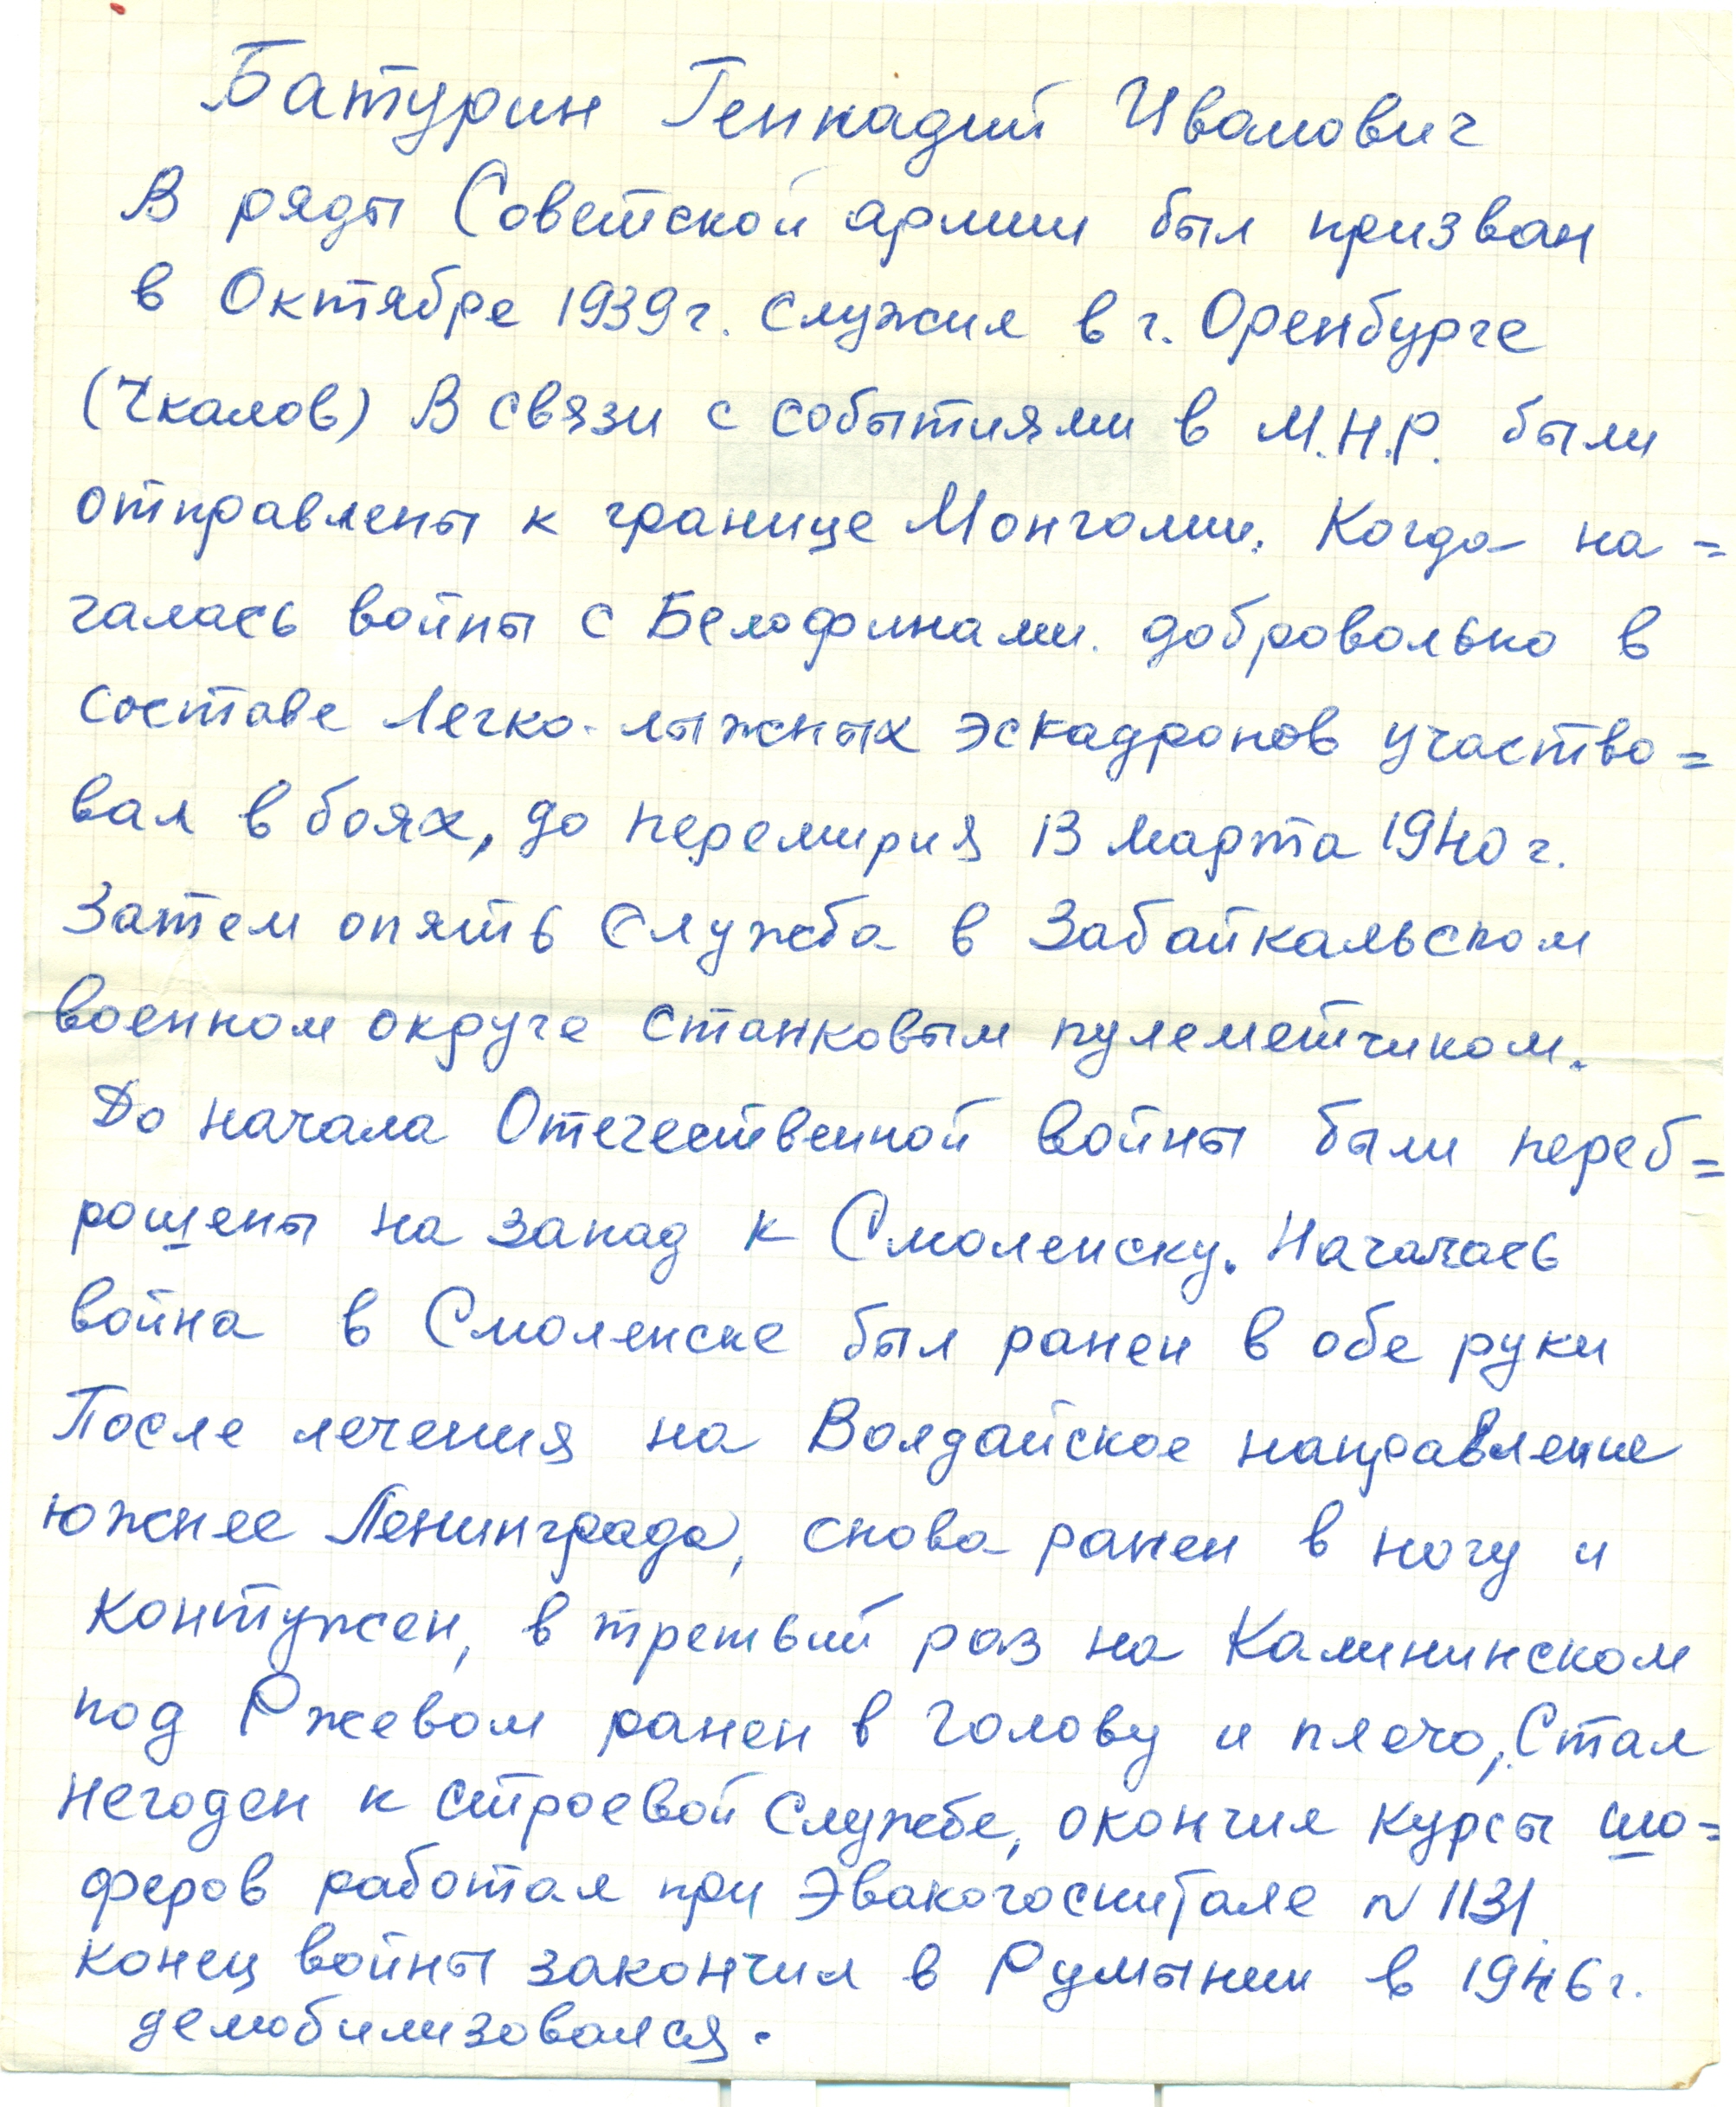 Батурин Геннадий Иванович
В ряды Советской армии был призван
в Октябре 1939г. служил в г. Оренбурге
(Чкалов) В связи с событиями в М.Н.Р. были
отправлены к границе Монголии. Когда на=
чалась войны с Белофинами. добровольно в
составе Легко-лыжных эскадронов участво=
вал в боях, до перемирия 13 марта 1940 г.
Затем опять Служба в Забайкальском
военном округе станковым пулеметчиком.
До начала Отечественной войны были переб=
рошены на запад к Смоленску. Началась
война в Смоленске был ранен в обе руки
После лечения на Волдайское направление
южнее Ленинграда, снова ранен в ногу и
контужен, в третьий раз на Калининском
под Ржевом ранен в голову и плечо, Стал
негоден к строевой Службе, окончил курсы шо=
феров работал при Эвакогоспитале N 1131
конец войны закончил в Румынии в 1946г.
демобилизовался.